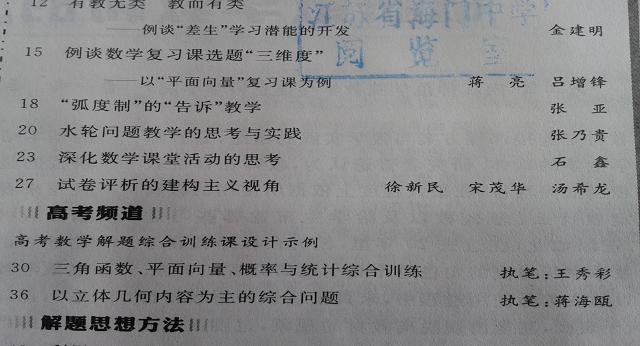 12 有教无类 教而有类
——例谈“差生”学习潜能的开发 金建明
江苏省海门中学
阅览室
15 例谈数学复习课选题“三维度”
——以“平面向量”复习课为例 蒋亮 吕增锋
18 “弧度制”的“告诉”教学 张亚
20 水轮问题教学的思考与实践 张乃贵
23 深化数学课堂活动的思考 石鑫
27 试卷评析的建构主义视角 徐新民 宋茂华 汤希龙
高考频道
高考数学解题综合训练课设计示例
30 三角函数、平面向量、概率与统计综合训练 执笔:王秀彩
36 以立体几何内容为主的综合问题 执笔:蒋海瓯
解题思想方法